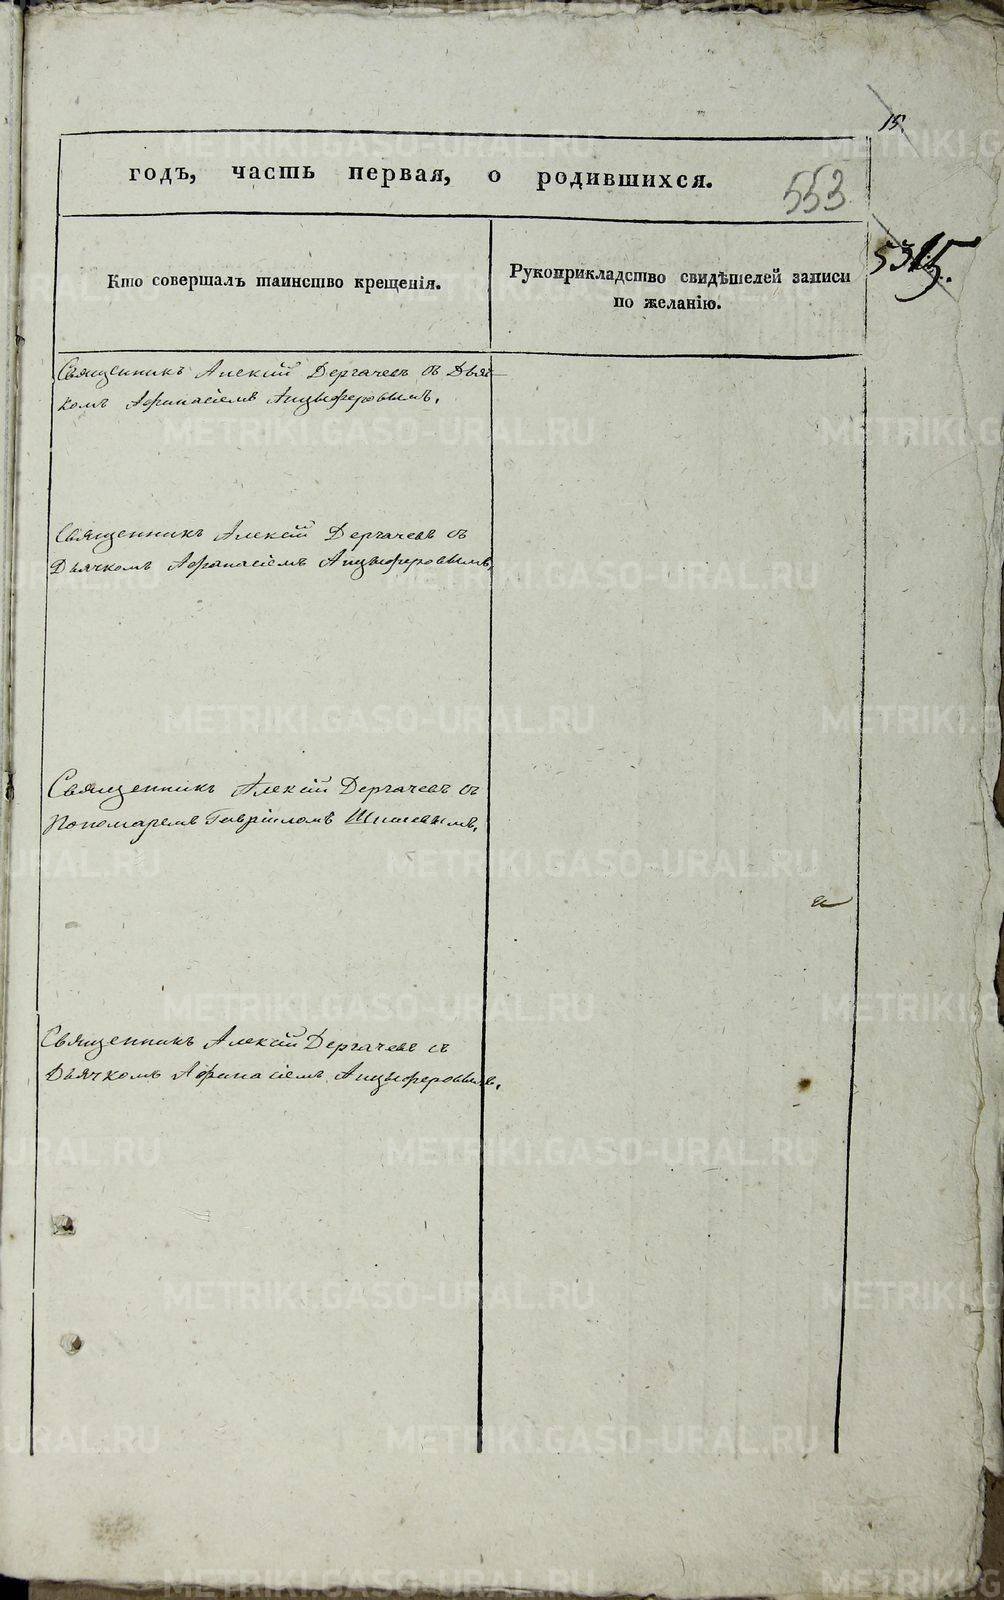 15.
годъ, часть первая, о родившихся.
553
5315.
Кто совершалъ таинство крещенія.
Рукоприкладство свидѣтелей записи
по желанію.
Священникъ Алексій Дергачевъ съ Дьяч-
комъ Афанасіемъ Анцыферовымъ,
Священникъ Алексій Дергачевъ съ
Дьячкомъ Афанасіемъ Анцыферовымъ,
Священникъ Алексій Дергачевъ съ
Пономаремъ Гавріиломъ
Священникъ Алексій Дергачевъ съ
Дьячкомъ Афанасіемъ Анцыферовымъ,
METRIKI.GASO-URAL.RU